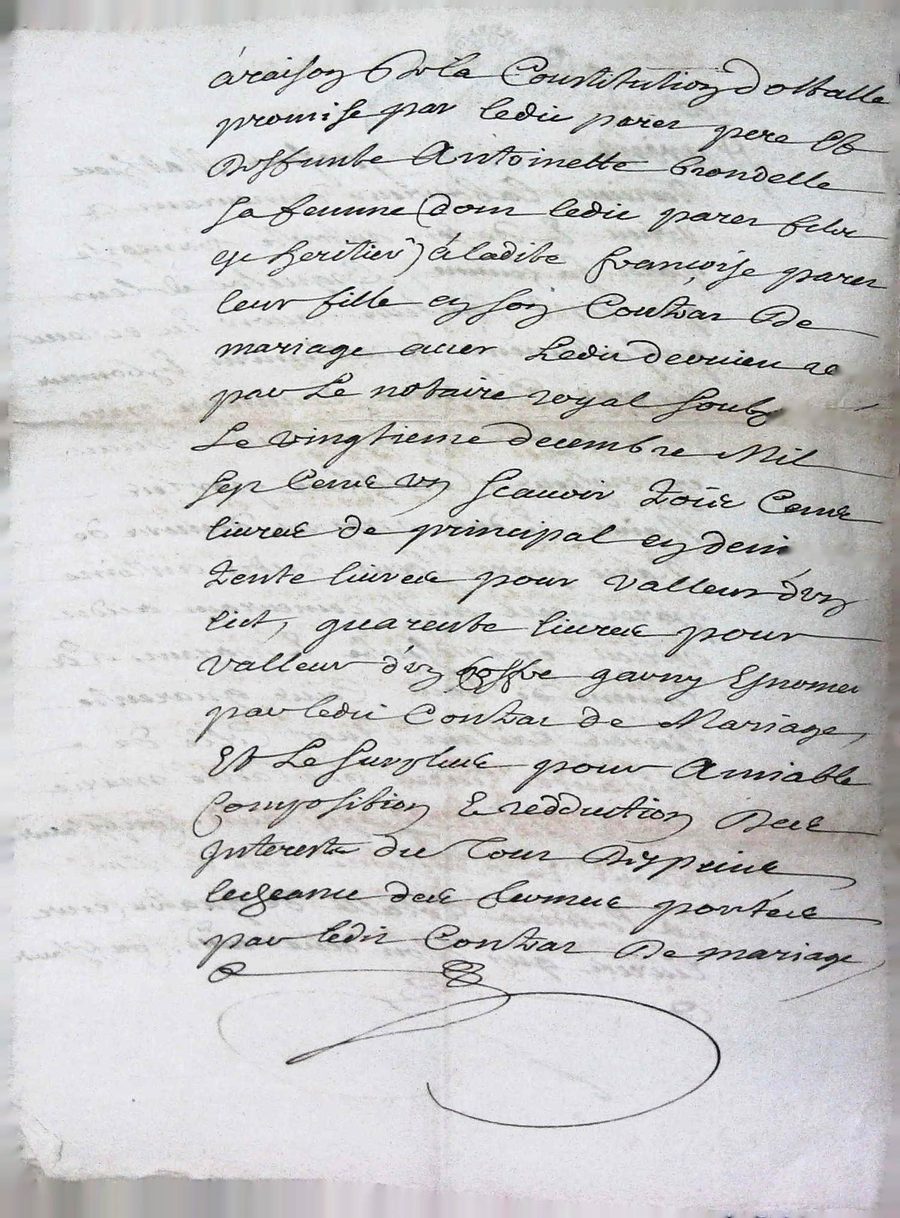 à raison de la Constitution dottalle
promise par ledit parer pere Et
deffunte Antoinette brondelle
sa femme (dont ledit parer filz
est heritier) à ladite françoise parer
leur fille en son Contrat de
mariage avec Ledit
par Le notaire royal soubz.
Le vingtieme decembre Mil
sept Cent un scavoir Cent
livres de principal
Trente livres pour valleur d'un
lict, quarente livres pour
valleur d'un coffre garny Enoncez
par ledit Contrat de Mariage,
Et Le surplus pour Amiable
Composition Et redduction des
Interestz du Jour
des termes portées
par ledit Contrat de mariage